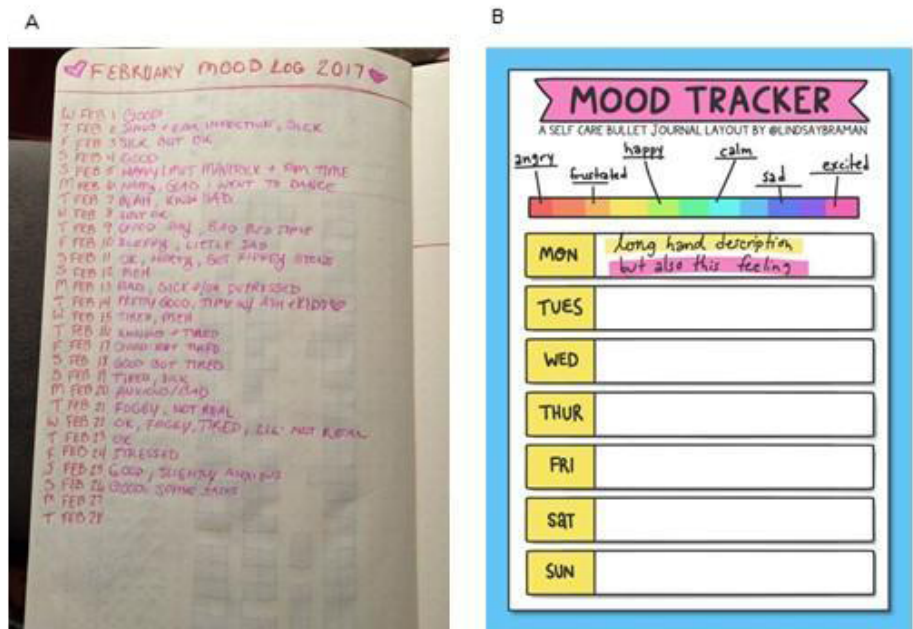 A
FEBRUARY MOOD LOG 2017
W FEB 1 GOOD
T FEB 2 SINUS + EAR INFECTION, SICK
F FEB 3 SICK BUT OK
S FEB 4 GOOD
S FEB 5 HAPPY + FAM TIME
M FEB 6 HAPPY, GLAD I WENT TO DANCE
T FEB 7 BLAH, KINDA BAD
W FEB 8 JUST OK
T FEB 9 GOOD DAY, BAD BED TIME
F FEB 10 SLEEPY, LITTLE SAD
S FEB 11 OK, GOT
S FEB 12 MEH
M FEB 13 BAD, SICK DEPRESSED
T FEB 14 PRETTY GOOD, TIME W/ + KIDS
W FEB 15 TIRED, MEH
T FEB 16 + TIRED
F FEB 17 GOOD BUT TIRED
S FEB 18 GOOD BUT TIRED
S FEB 19 TIRED, SICK
M FEB 20 ANXIOUS/BAD
T FEB 21 FOGGY, NOT REAL
W FEB 22 OK, FOGGY, TIRED, LIL' NOT REAL
T FEB 23 OK
F FEB 24 STRESSED
S FEB 25 GOOD, SLIGHTLY ANXIOUS
S FEB 26 GOOD, SOME
M FEB 27
T FEB 28
B
MOOD TRACKER
A SELF CARE BULLET JOURNAL LAYOUT BY @LINDSAYBRAMAN
angry frustrated happy calm sad excited
MON long hand description
but also this feeling
TUES
WED
THUR
FRI
SAT
SUN